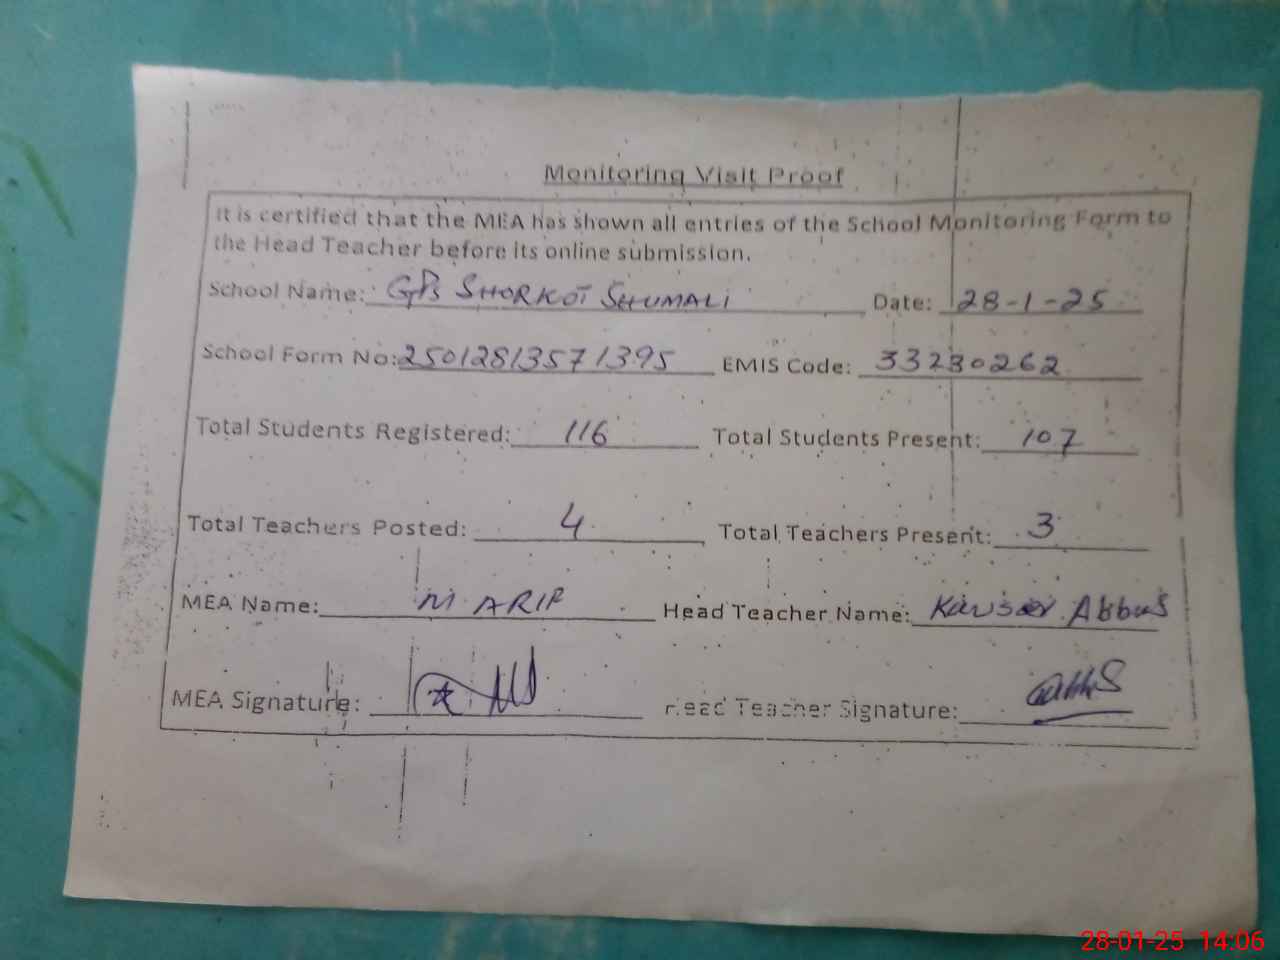 Monitoring Visit Proof
It is certified that the MEA has shown all entries of the School Monitoring Form to
the Head Teacher before its online submission.
School Name: GPS SHORKOT SHUMALI Date: 28-1-25
School Form No: 25012813571395 EMIS Code: 33230262
Total Students Registered: 116 Total Students Present: 107
Total Teachers Posted: 4 Total Teachers Present: 3
MEA Name: M. ARIF Head Teacher Name: Kawser Abbas
MEA Signature: Head Teacher Signature:
28-01-25 14:06